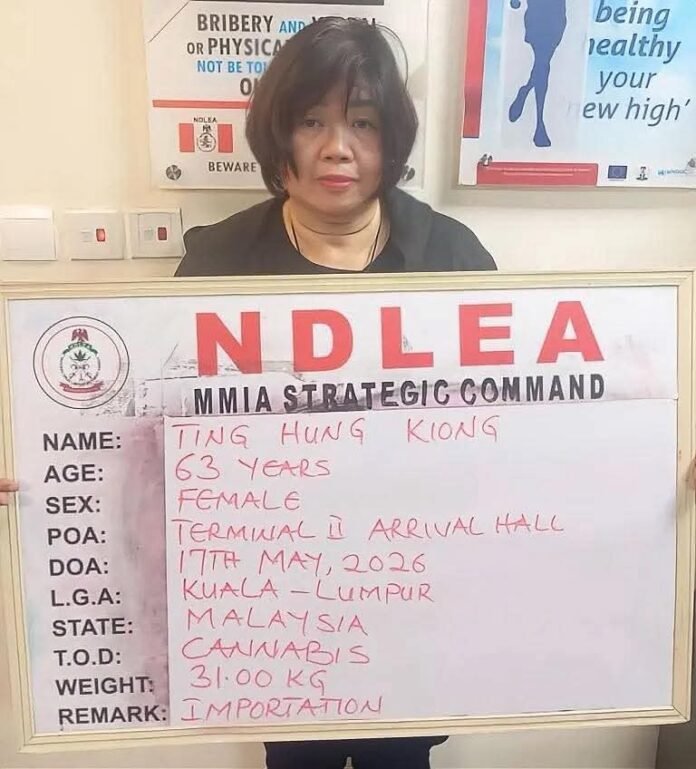 BRIBERY AND
OR PHYSICAL
NOT BE
NDLEA
BEWARE
being
healthy
your
new high'
NDLEA
NDLEA
MMIA STRATEGIC COMMAND
NAME: TING HUNG KIONG
AGE: 63 YEARS
SEX: FEMALE
POA: TERMINAL II ARRIVAL HALL
DOA: 17TH MAY, 2026
L.G.A: KUALA - LUMPUR
STATE: MALAYSIA
T.O.D: CANNABIS
WEIGHT: 31.00 KG
REMARK: IMPORTATION